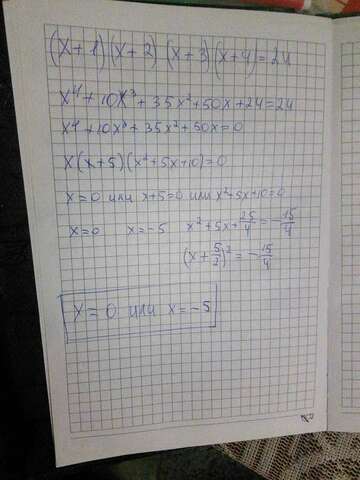 (x+1)(x+2)(x+3)(x+4)=24
x⁴+10x³+35x²+50x+24=24
x⁴+10x³+35x²+50x=0
x(x+5)(x²+5x+10)=0
x=0 или x+5=0 или x²+5x+10=0
x=0 x=-5 x²+5x+25/4=-15/4
(x+5/2)²=-15/4
x=0 или x=-5